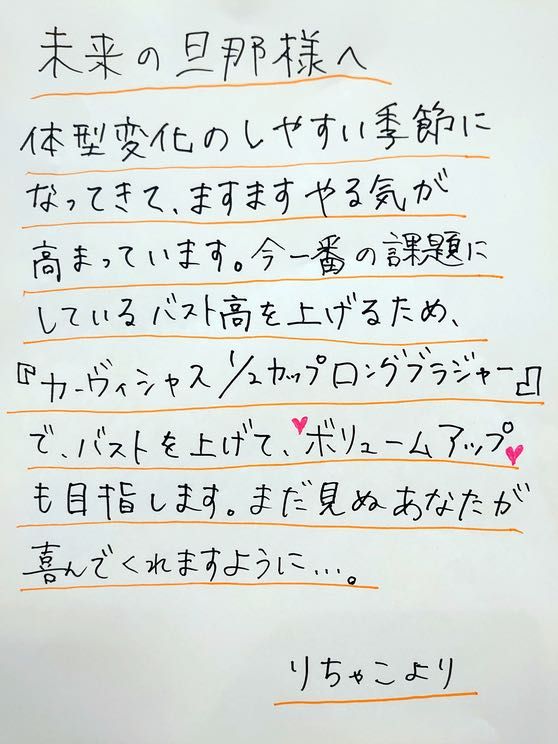 未来の旦那様へ
体型変化のしやすい季節に
なってきて、ますますやる気が
高まっています。今一番の課題に
しているバスト高を上げるため、
『カーヴィシャス1/2カップロングブラジャー』
で、バストを上げて、♥ボリュームアップ♥
も目指します。まだ見ぬあなたが
喜んでくれますように…。
りちゃこより